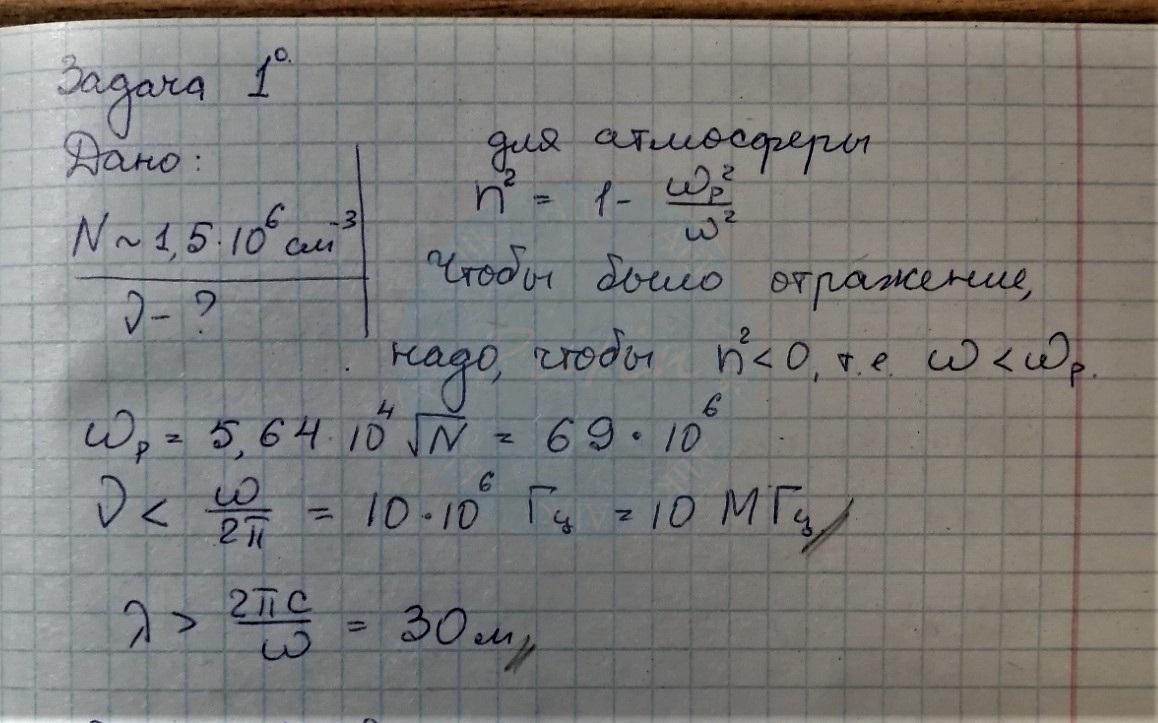 Задача 1⁰.
Дано:
N ~ 1,5·10⁶ см⁻³
ν - ?
для атмосферы
n² = 1 - ωₚ²/ω²
Чтобы было отражение,
надо, чтобы n² < 0, т.е. ω < ωₚ.
ωₚ = 5,64·10⁴ √N = 69·10⁶
ν < ω/2π = 10·10⁶ Гц = 10 МГц
λ > 2πc/ω = 30 м